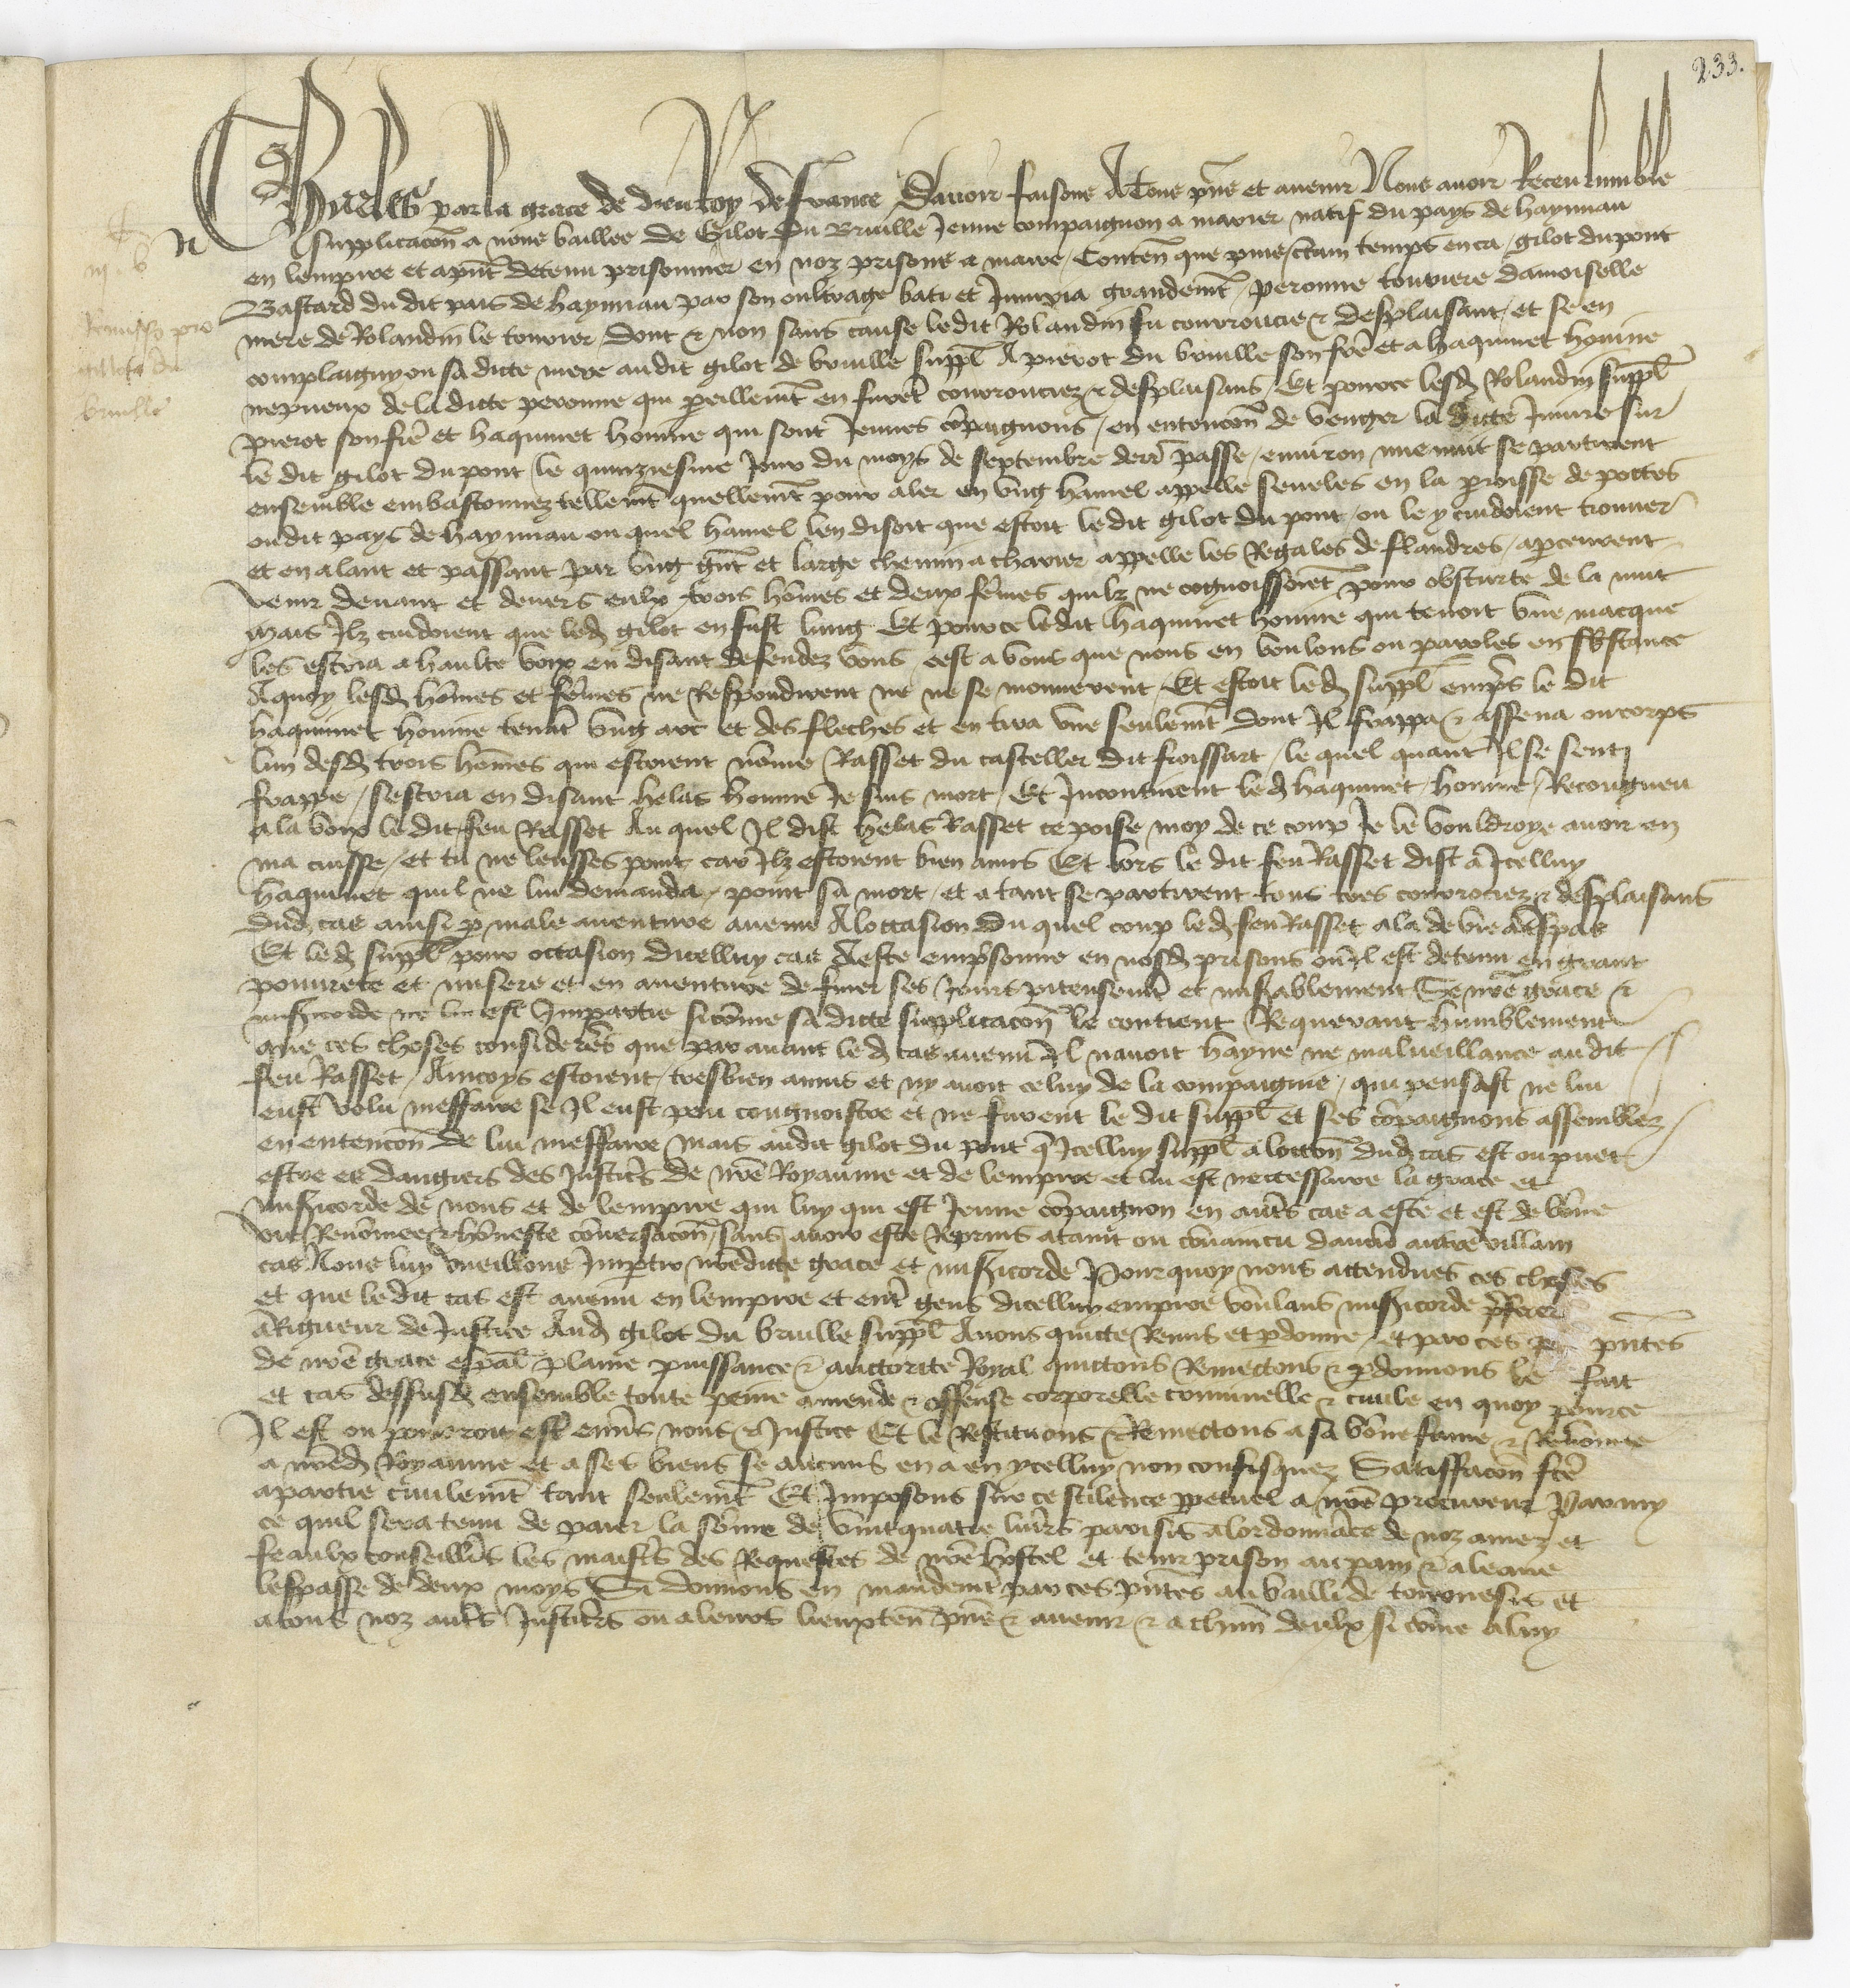 233.
Charles par la grace de dieu Roy de france Savoir faisons A Tous pñs et avenir Nous avoir Receu humble
supplicacõn a nous baillee de Gilot du Bruille Jeune compaignon a marier natif du pays de haynnau
en lempire et a pñt detenu prisonnier en noz prisons a maire / Conteñ que comme certain temps enca / gilot du pont
Bastard du dit pais de haynnau par son oultrage bati et Jniuria grandemẽt / peronne touriere damoiselle
mere de Rolandin le tourier / dont & non sans cause ledit Rolandin fu courroucie & desplaisant / et se en
complaigny ou sa dicte mere audit gilot de bruille suppl̃ A pierot du bruille son fr̃e et a haquinet honnie
nepueux de la dicte peronne qui pareillemẽt en furẽt courrouciez & desplaisans / Et pource lesd̃ Rolandin suppl̃
pierot son fr̃e et haquinet honnie qui sont Jeunes cõpaignons / en entencõn de venger la dicte Jniure sur
le dit gilot du pont / le quinziesme Jour du moys de septembre dernr̃ passe / environ mie nuit se partirent
ensemble embastonnez tellemẽt quellemẽt pour aler en vng hamel appelle seneles en la ꝑroisse de pottes
ou dit pays de haynnau ou quel hamel len disoit que estoit le dit gilot du pont / ou le y cuidoient trouuer
et en alant et passant par vng gr̃t et large chemin a charier appelle les Regales de flandres / aꝑceurent
venir deuant et deuers eulx trois hõmes et deux fẽmes quilz ne cognoissoiẽt pour obscurte de la nuit
Mais Jlz cuidoient que led̃ gilot en fust lung Et pource ledit haquinet honnie qui tenoit vne macque
les escria a haulte voix en disant defendez vous / cest a vous que nous en voulons ou paroles en s̃bstance
A quoy lesd̃ hõmes et fẽmes ne Respondirent ne ne se mouuerent / Et estoit led̃ suppl̃ empr̃s le dit
haquinet honnie tenãt vng arc et des fleches et en tira vne seulemẽt dont Jl frappa & assena ou corps
lun desd̃ trois hõmes qui estoient nõme Rasset du casteller dit froissart / le quel quant Jl se senti
frappe / sescria en disant helas honnie Je suis mort / Et Jncontinent led̃ haquinet honnie / Recongneu
a la voix le dit feu Rasset Au quel Jl dist helas Rasset ce poise moy de ce coup Je le vouldroye auoir en
ma cuisse / et tu ne leusses point car Jlz estoient bien amis Et lors le dit feu Rasset dist a Jcelluy
haquinet quil ne lui demanda / point sa mort / et a tant se partirent tous tres courrociez & desplaisans
dud̃ cas ainsi ꝑ male auenture auenu A loccasion Du quel coup led̃ feu Rasset ala de vie a trespas
Et led̃ suppl̃ pour occasion dicelluy cas A este empr̃sonne en nosd̃ prisons ou Jl est detenu en grant
pourete et misere et en auenture de finer ses Jours piteusemẽt et mis̃ablement Se nr̃e grace &
mis̃icorde ne lui est Jmpartie sicõme sa dicte supplicacõn le contient Requerant humblement
que ces choses considerẽs que par auant led̃ cas auenu Jl nauoit hayne ne malueillance au dit
feu Rasset / Aincoys estoient / tresbien amis et ny auoit celuy de la compaignie / qui pensast ne lui
eust volu meffaire se Jl eust peu congnoistre et ne furent le dit suppl̃ et ses cõpaignons assemblez
en entencõn de lui meffaire mais au dit gilot du pont q̃ Jcelluy suppl̃ a locc̃on dud̃ cas est ou puet
estre es dangiers des Justicr̃s de nr̃e Royaume et de lempire et lui est neccessaire la grace et
mis̃icorde de nous et de lempire qui luy qui est Jeune cõpaignon en aut̃s cas a este et est de bõne
vie Renõmee & hõneste cõuersacõn / sans auoir este Reprins ataint ou cõuaincu daucũ autre villain
cas Nous luy vueillons Jmꝑtir nr̃edicte grace et mis̃icorde Pourquoy nous attendues ces choses
et que le dit cas est auenu en lempire et entr̃ gens dicelluy empire voulans mis̃icorde p̃ferer
a Rigueur de Justice Aud̃ gilot du bruille suppl̃ Auons quicte Remis et ꝑdonne / et par ces pñtes
de nr̃e grace esp̃al plaine puissance & auctorite Royal quictons Remectons & ꝑdonnons le fait
et cas dessusd̃ ensemble toute peine amende & offense corporelle criminelle & ciuile en quoy pource
Jl est ou pourroit est̃ enũs nous & Justice Et le Restituons & Remectons a sa bõne fame & Renõmee
a nr̃ed̃ Royaume et a ses biens se aucuns en a en ycelluy non confisquez Satisfacõn fc̃e
a partie ciuilemẽt tant seulemẽt Et Jmposons sur ce scilence ꝑpetuel a nr̃e procureur Parmy
ce quil sera tenu de paier la sõme de vint quatre liur̃s parisis a lordonnãce de noz amez et
feaulx conseillr̃s les maistr̃s des Requestes de nr̃e hostel et tenir prison au pain & a leaue
lespasse de deux moys Si donnons en mandemẽt par ces pñtes au bailli de tournesis et
a tous noz aut̃s Justicr̃s ou a leurs lieuxteñ pñs & auenir & a ch̃un deulx si cõme a luy
Remissio pro
gilloto du
bruille